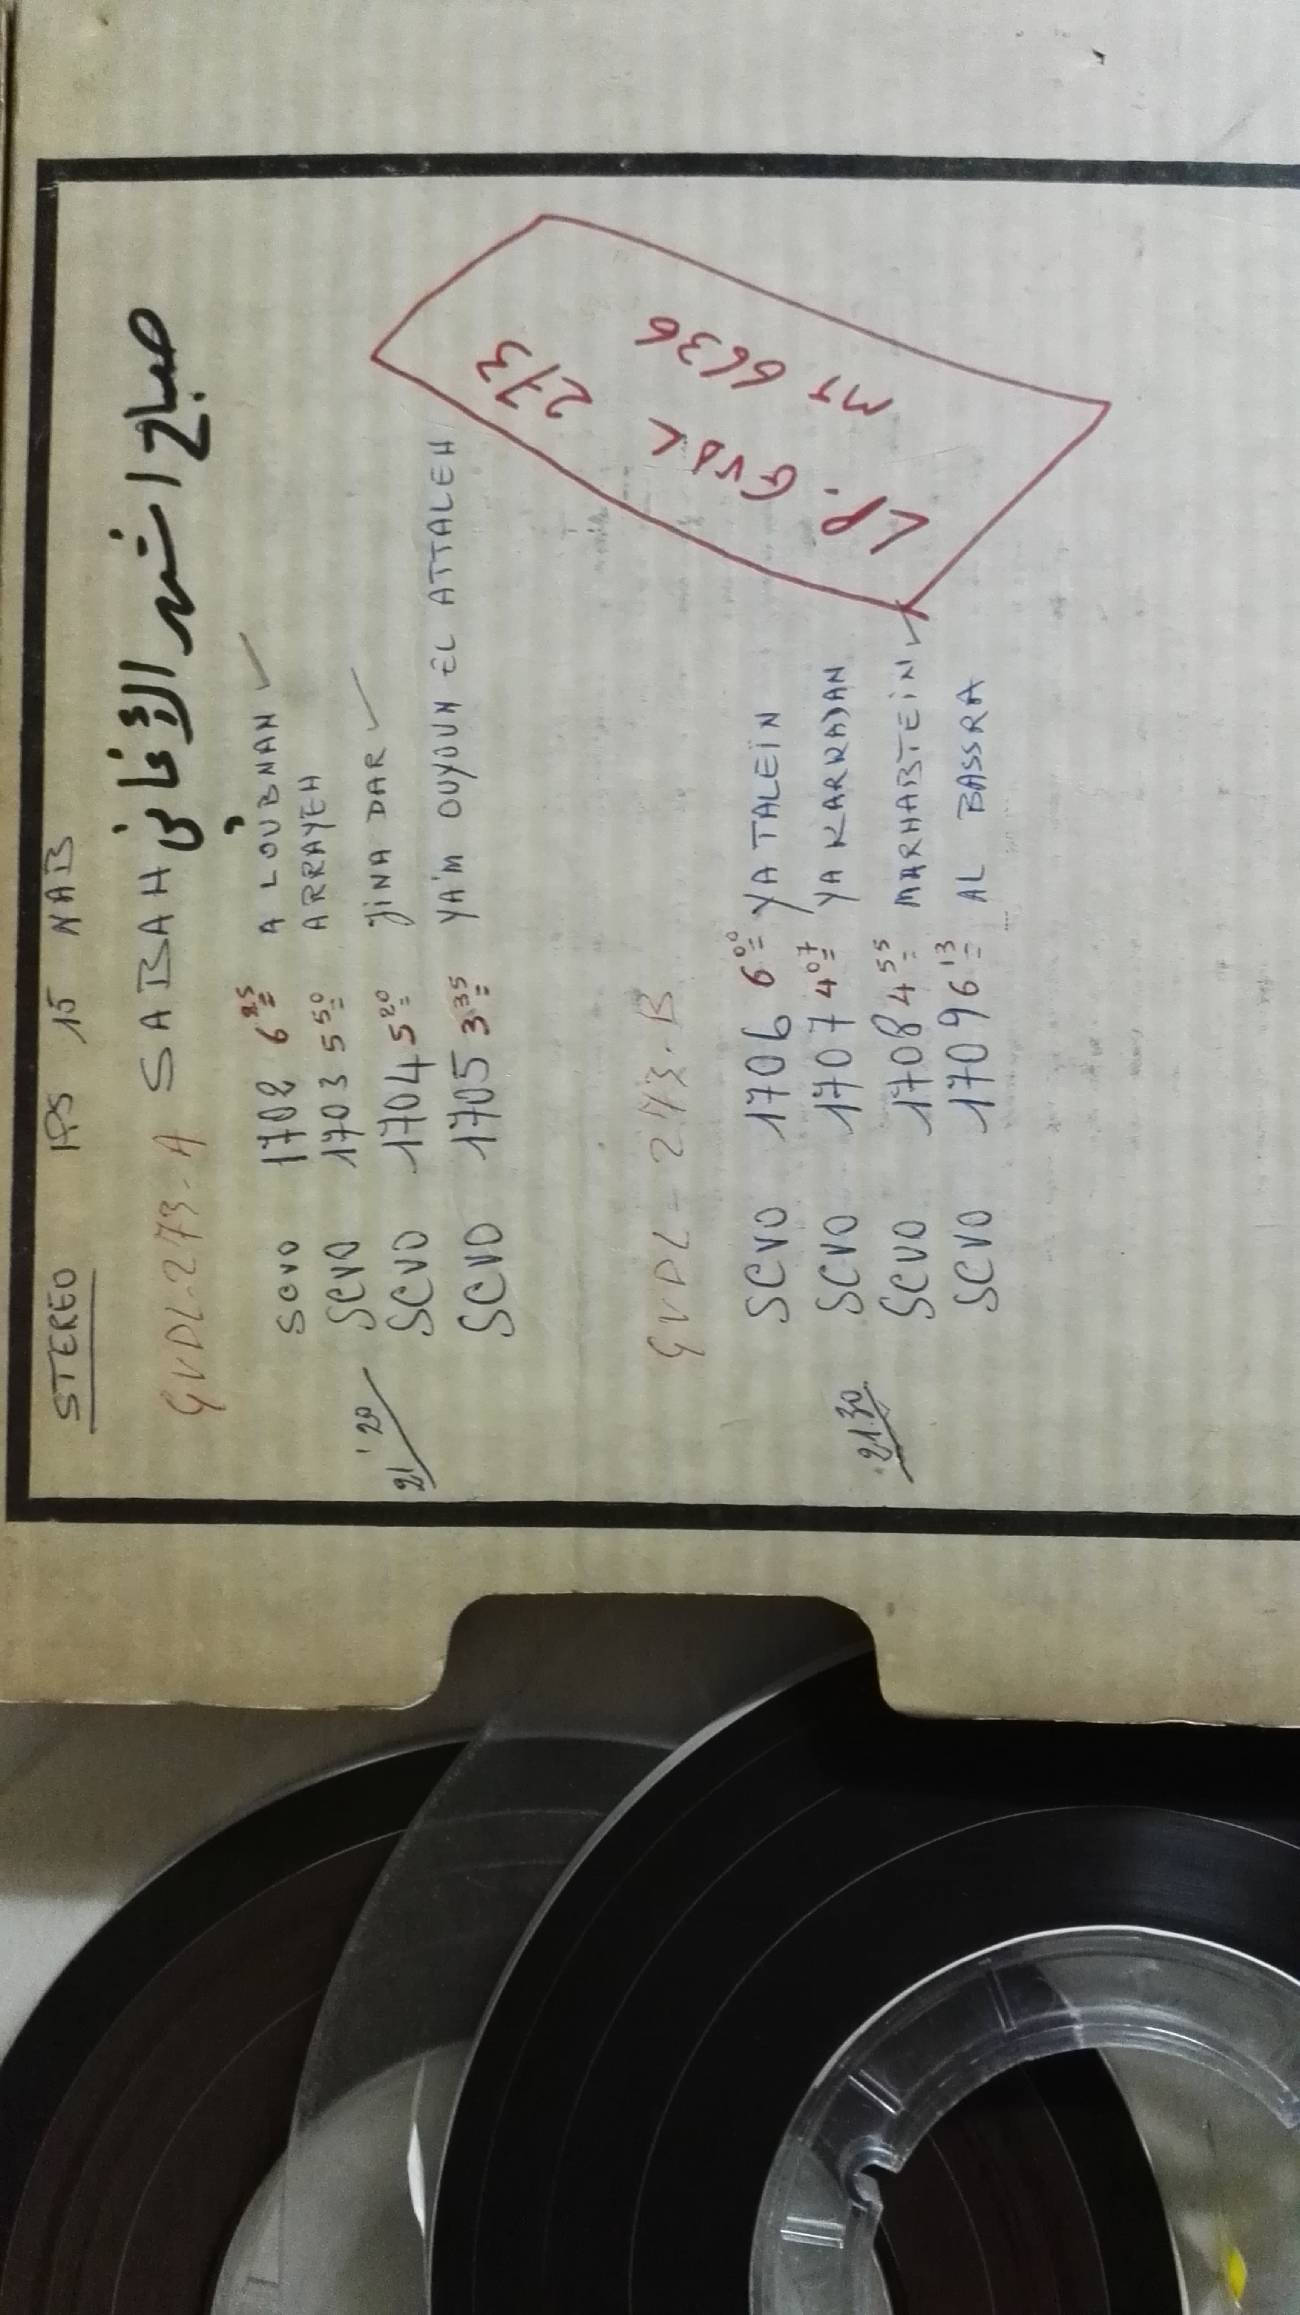 STEREO IPS 15 NAB
GVDL-273-A SABAH صباح اشهر الأغاني
SCVO 1702 6 25 A LOUBNAN
SCVO 1703 5 50 ARRAYEH
SCVO 1704 5 20 JINA DAR
SCVO 1705 3 35 YA'M OUYOUN EL ATTALEH
21'20
GVDL-273-B
SCVO 1706 6 00 YA TALEÏN
SCVO 1707 4 07 YA KARRADAN
SCVO 1708 4 55 MARHABTEIN
SCVO 1709 6 13 AL BASSRA
21.30
LP. GVDL 273
MT 6636